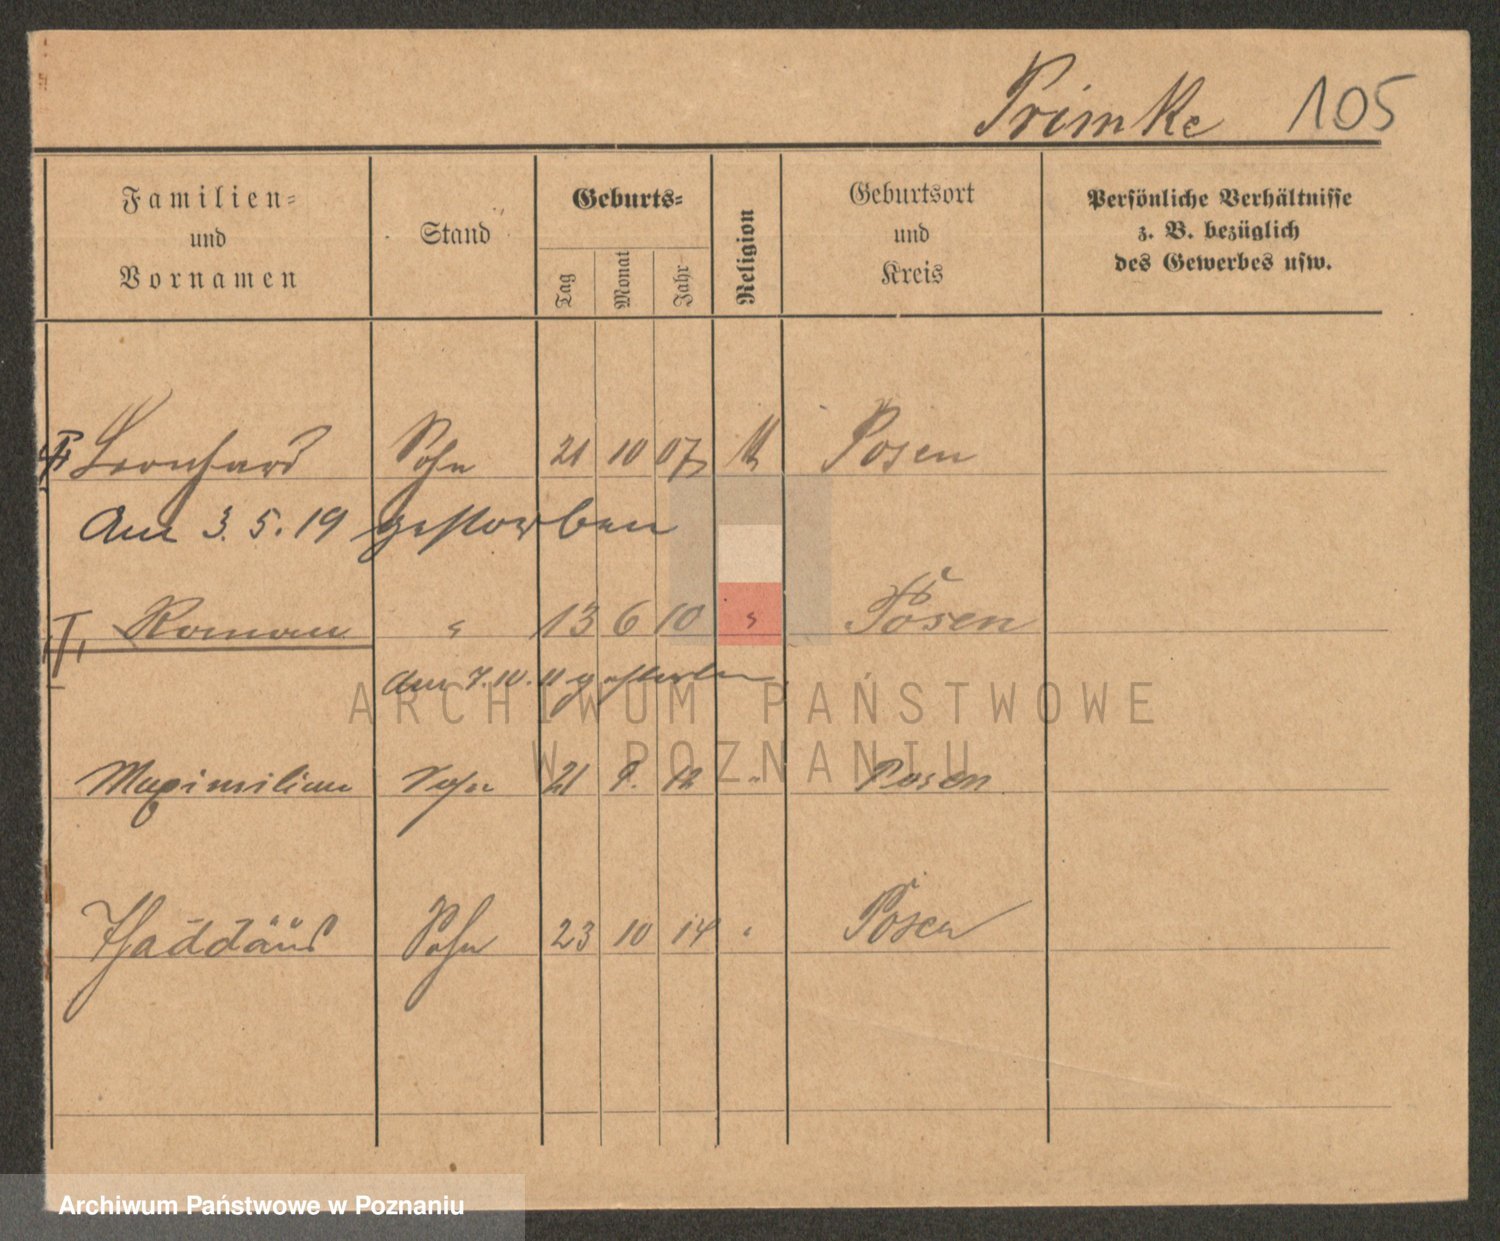 Primke 105
Familien=
und
Vornamen
Stand
Geburts=
Tag
Monat
Jahr
Religion
Geburtsort
und
Kreis
Persönliche Verhältnisse
z. B. bezüglich
des Gewerbes usw.
Leonhard Sohn 21 10 07 Posen
Am 3.5.19 gestorben
Roman " 13 6 10 " Posen
am 7.10.11 gestorben
Maximilian Sohn 21 9. 12 " Posen
Thaddäus Sohn 23 10 14 " Posen
ARCHIWUM PAŃSTWOWE
W POZNANIU
Archiwum Państwowe w Poznaniu